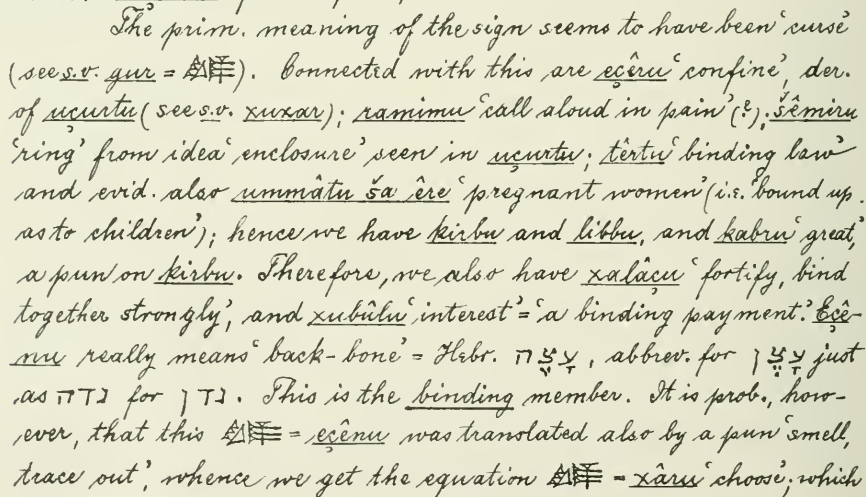 The prim. meaning of the sign seems to have been ‘curse’
(see s.v. gur = ). Connected with this are eçêru ‘confine’, der.
of uçurtu (see s.v. xuxar); ramimu ‘call aloud in pain’(?); šêmiru
‘ring’ from idea ‘enclosure’ seen in uçurtu; têrtu ‘binding law’
and evid. also ummâtu ša êre ‘pregnant women’ (i.e. ‘bound up
as to children’); hence we have kirbu and libbu, and kabru ‘great,’
a pun on kirbu. Therefore, we also have xalâçu ‘fortify, bind
together strongly’, and xubûlu ‘interest’ = ‘a binding payment.’ Eçê-
nu really means ‘back-bone’ = Hebr. עָצֶה, abbrev. for עצן just
as נדה for נדן. This is the binding member. It is prob., how-
ever, that this = eçênu was translated also by a pun ‘smell,
trace out’, whence we get the equation = xâru ‘choose’, which